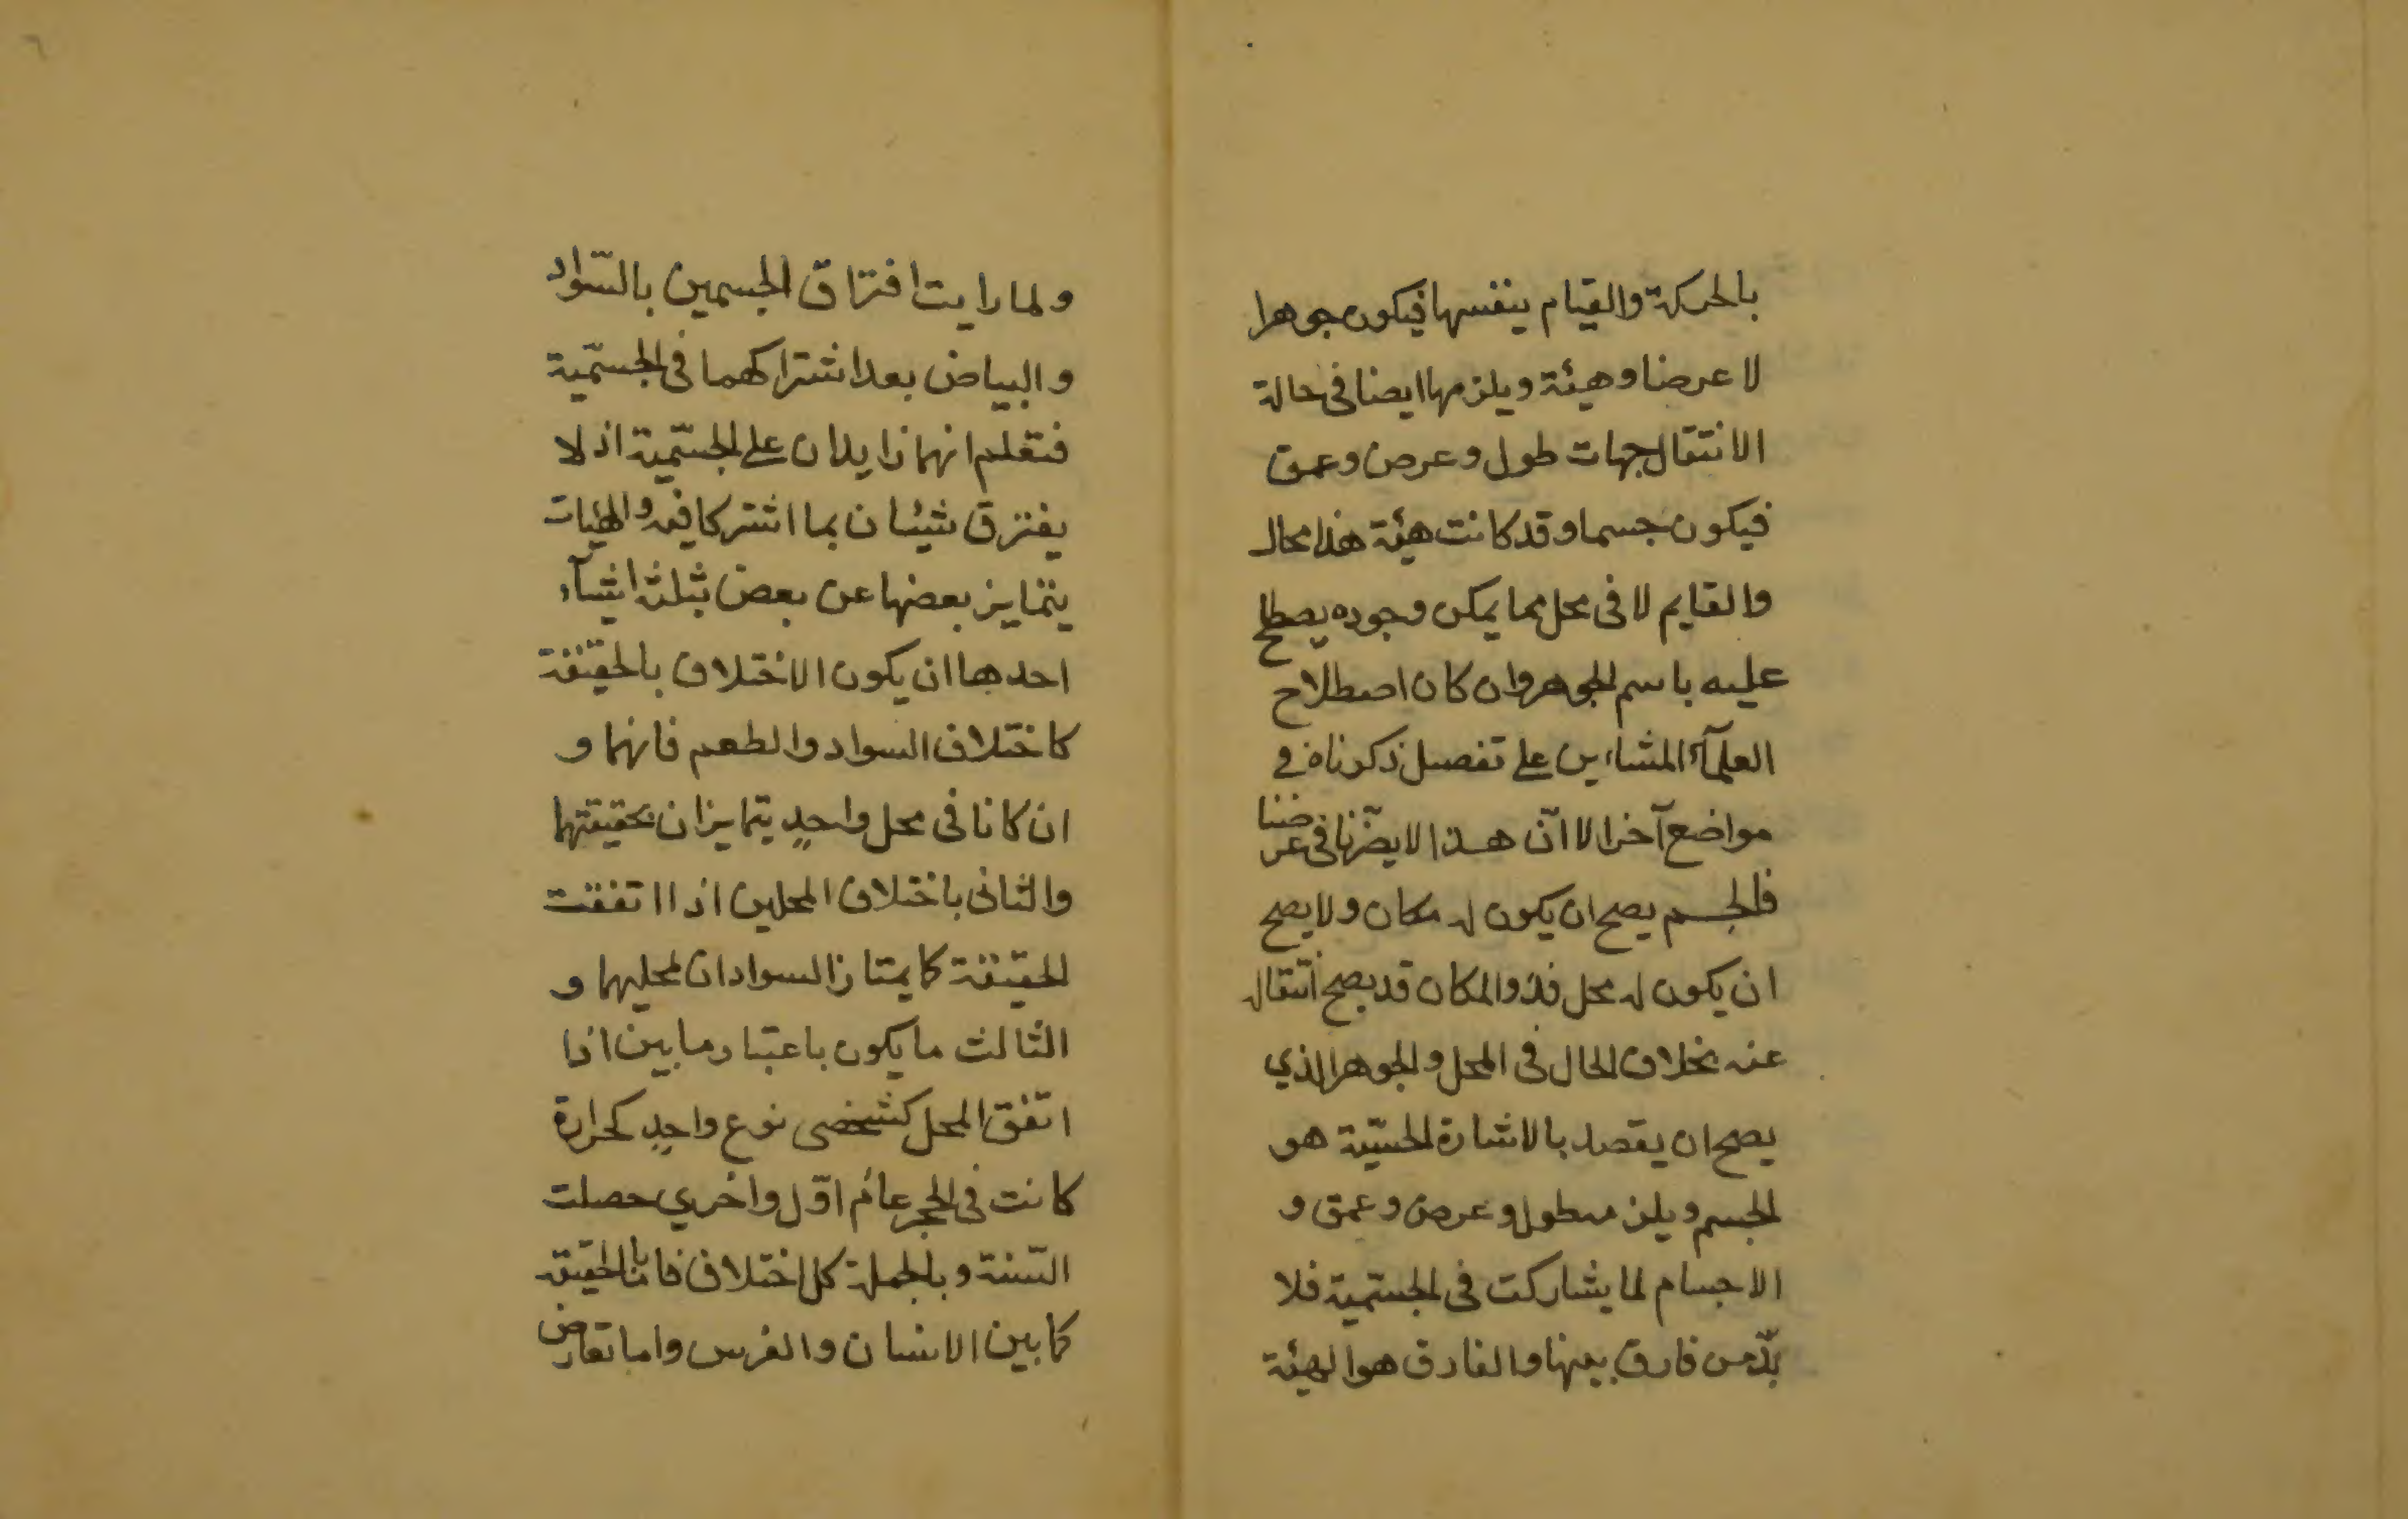 بالحركة والقيام بنفسها فيكون جوهرا
لا عرضا وهيئة ويلزمها ايضا فى حالة
الانتقال جهات طول وعرض وعمق
فيكون جسما وقد كانت هيئة هذا محال
والقايم لا فى محل مما يمكن وجوده يصطلح
عليه باسم الجوهر وان كان اصطلاح
العلمآء المشاءين على تفصيل ذكرناه فى
مواضع آخر الا انّ هذا لا يضرّنا فى غرضنا
فالجسم يصح ان يكون له مكان ولا يصح
ان يكون له محل فذو المكان قد يصح انتقاله
عنه بخلاف الحال فى المحل والجوهر الذي
يصح ان يقصد بالاشارة الحسّيّة هو
الجسم ويلزمه طول وعرض وعمق و
الاجسام لما يشاركت فى الجسّمية فلا
بدّ من فارق بينها والفارق هو الهيئة
ولما رايت افتراق الجسمين بالسّواد
والبياض بعد اشتراكهما فى الجسّمية
فتعلم انهما زايدان على الجسّمية اذ لا
يفترق شيئان بما اشتركا فيه والهئات
يتمايز بعضها عن بعض بثلثة اشيآء
احدها ان يكون الاختلاف بالحقيقة
كاختلاف السواد والطعم فانهما و
ان كانا فى محل واحدٍ يتمايزان بحقيقتهما
والثانى باختلاف المحلين اذا اتفقت
الحقيقة كما يمتاز السوادان لمحليهما و
الثالث ما يكون باعتبار ما بين اذا
اتفق المحل كشخصى نوع واحدٍ كحرارة
كانت فى الحجر عام اوّل واخري حصلت
السّنة وبالجملة كل اختلاف فاما بالحقيقة
كما بين الانسان والفرس واما بعارض
٦